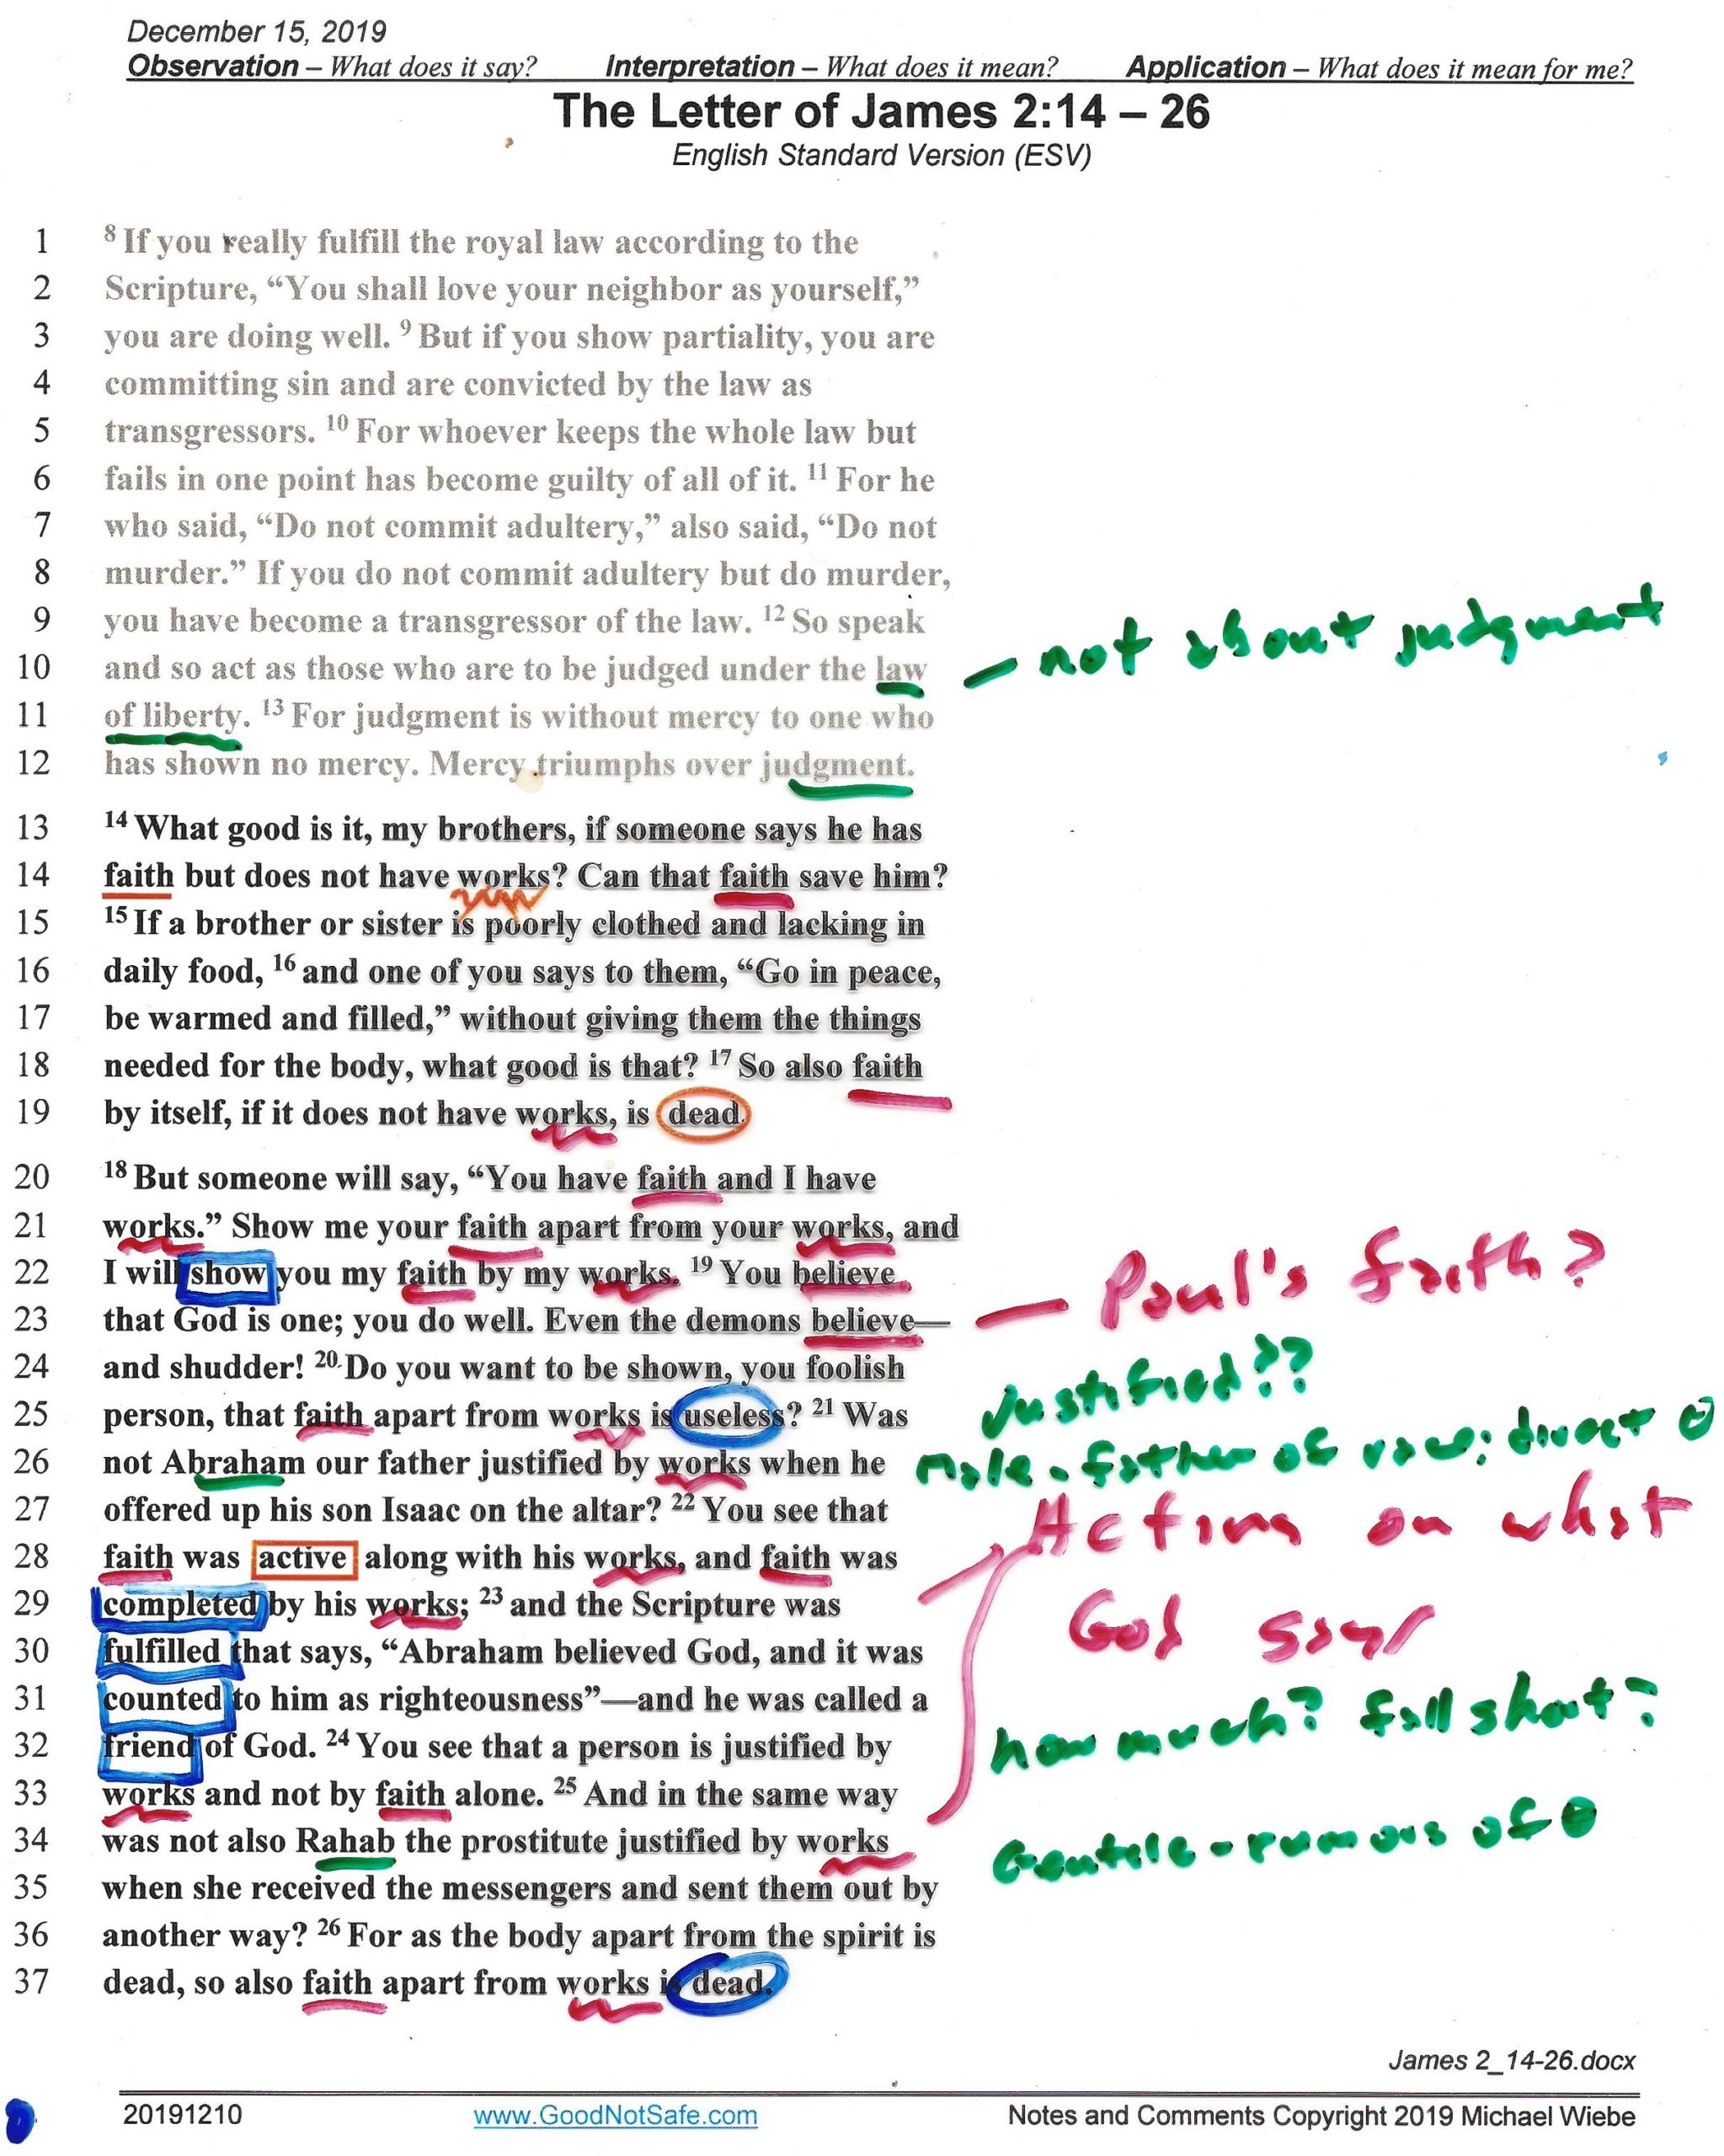 December 15, 2019
Observation – What does it say? Interpretation – What does it mean? Application – What does it mean for me?
The Letter of James 2:14 – 26
English Standard Version (ESV)
1 8 If you really fulfill the royal law according to the
2 Scripture, “You shall love your neighbor as yourself,”
3 you are doing well. 9 But if you show partiality, you are
4 committing sin and are convicted by the law as
5 transgressors. 10 For whoever keeps the whole law but
6 fails in one point has become guilty of all of it. 11 For he
7 who said, “Do not commit adultery,” also said, “Do not
8 murder.” If you do not commit adultery but do murder,
9 you have become a transgressor of the law. 12 So speak
10 and so act as those who are to be judged under the law – not about judgment
11 of liberty. 13 For judgment is without mercy to one who
12 has shown no mercy. Mercy triumphs over judgment.
13 14 What good is it, my brothers, if someone says he has
14 faith but does not have works? Can that faith save him?
15 15 If a brother or sister is poorly clothed and lacking in
16 daily food, 16 and one of you says to them, “Go in peace,
17 be warmed and filled,” without giving them the things
18 needed for the body, what good is that? 17 So also faith
19 by itself, if it does not have works, is dead.
20 18 But someone will say, “You have faith and I have
21 works.” Show me your faith apart from your works, and
22 I will show you my faith by my works. 19 You believe
23 that God is one; you do well. Even the demons believe— – Paul's faith?
24 and shudder! 20 Do you want to be shown, you foolish
Justified??
25 person, that faith apart from works is useless? 21 Was
26 not Abraham our father justified by works when he male - father of ; direct
27 offered up his son Isaac on the altar? 22 You see that
Acting on what
28 faith was active along with his works, and faith was
29 completed by his works; 23 and the Scripture was
God says
30 fulfilled that says, “Abraham believed God, and it was
31 counted to him as righteousness”—and he was called a
how much? fall short?
32 friend of God. 24 You see that a person is justified by
33 works and not by faith alone. 25 And in the same way
34 was not also Rahab the prostitute justified by works
Gentile - rumors of
35 when she received the messengers and sent them out by
36 another way? 26 For as the body apart from the spirit is
37 dead, so also faith apart from works is dead.
James 2_14-26.docx
20191210 www.GoodNotSafe.com Notes and Comments Copyright 2019 Michael Wiebe